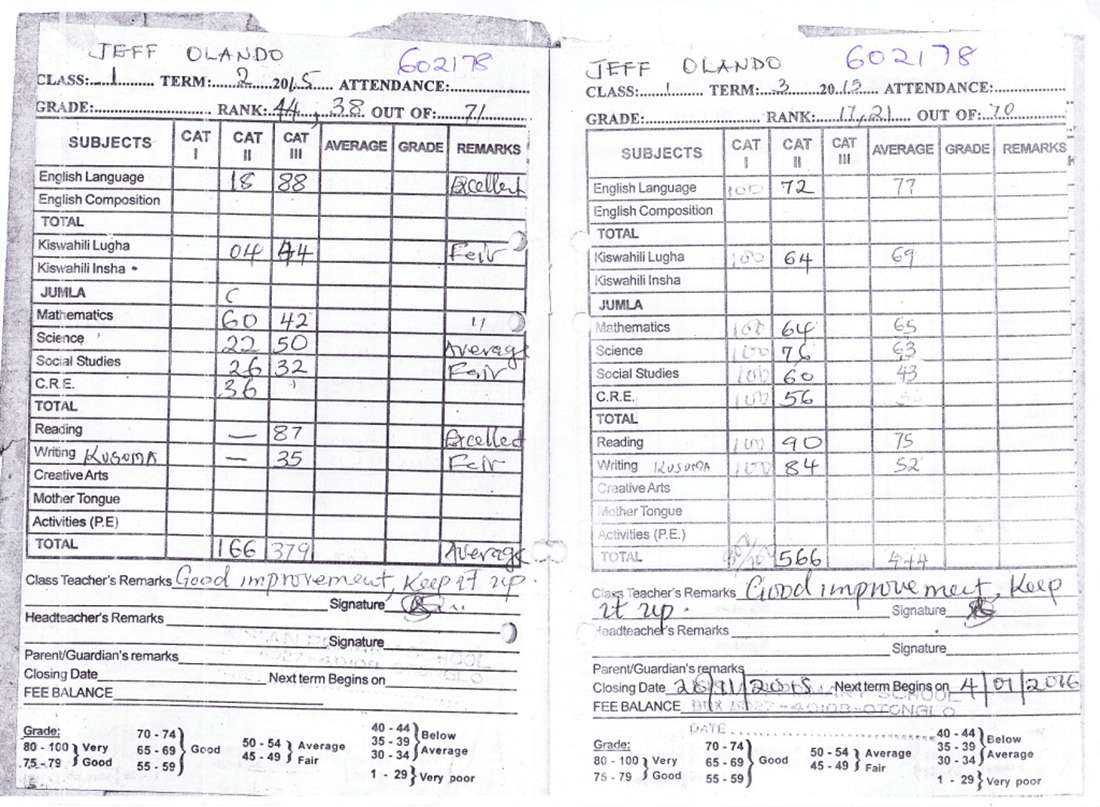 JEFF OLANDO 602178
CLASS:...1... TERM:...2...2015... ATTENDANCE:
GRADE:... RANK:..44, 38 OUT OF:...71
SUBJECTS CAT I CAT II CAT III AVERAGE GRADE REMARKS
English Language 18 88 Excellent
English Composition
TOTAL
Kiswahili Lugha 04 44 Fair
Kiswahili Insha
JUMLA C
Mathematics 60 42 "
Science 22 50 Average
Social Studies 26 32 Fair
C.R.E. 36
TOTAL
Reading — 87 Excellent
Writing KUSOMA — 35 Fair
Creative Arts
Mother Tongue
Activities (P.E)
TOTAL 166 379 Average
Class Teacher's Remarks Good improvement, Keep it up.
Signature
Headteacher's Remarks
Signature
Parent/Guardian's remarks
Closing Date Next term Begins on
FEE BALANCE
Grade:
80 - 100 Very
75 - 79 Good
70 - 74
65 - 69 Good
55 - 59
50 - 54 Average
45 - 49 Fair
40 - 44 Below
35 - 39 Average
30 - 34
1 - 29 Very poor
JEFF OLANDO 602178
CLASS:...1... TERM:...3...2015... ATTENDANCE:
GRADE:... RANK:...17, 21... OUT OF:..70
SUBJECTS CAT I CAT II CAT III AVERAGE GRADE REMARKS
English Language 100 72 77
English Composition
TOTAL
Kiswahili Lugha 100 64 69
Kiswahili Insha
JUMLA
Mathematics 100 64 65
Science 100 76 63
Social Studies 100 60 43
C.R.E. 100 56
TOTAL
Reading 100 90 75
Writing KUSOMA 100 84 52
Creative Arts
Mother Tongue
Activities (P.E.)
TOTAL 566 444
Class Teacher's Remarks Good improvement, Keep
it up. Signature
Headteacher's Remarks
Signature
Parent/Guardian's remarks
Closing Date 26/11/2015 Next term Begins on 4/01/2016
FEE BALANCE
DATE
Grade:
80 - 100 Very
75 - 79 Good
70 - 74
65 - 69 Good
55 - 59
50 - 54 Average
45 - 49 Fair
40 - 44 Below
35 - 39 Average
30 - 34
1 - 29 Very poor